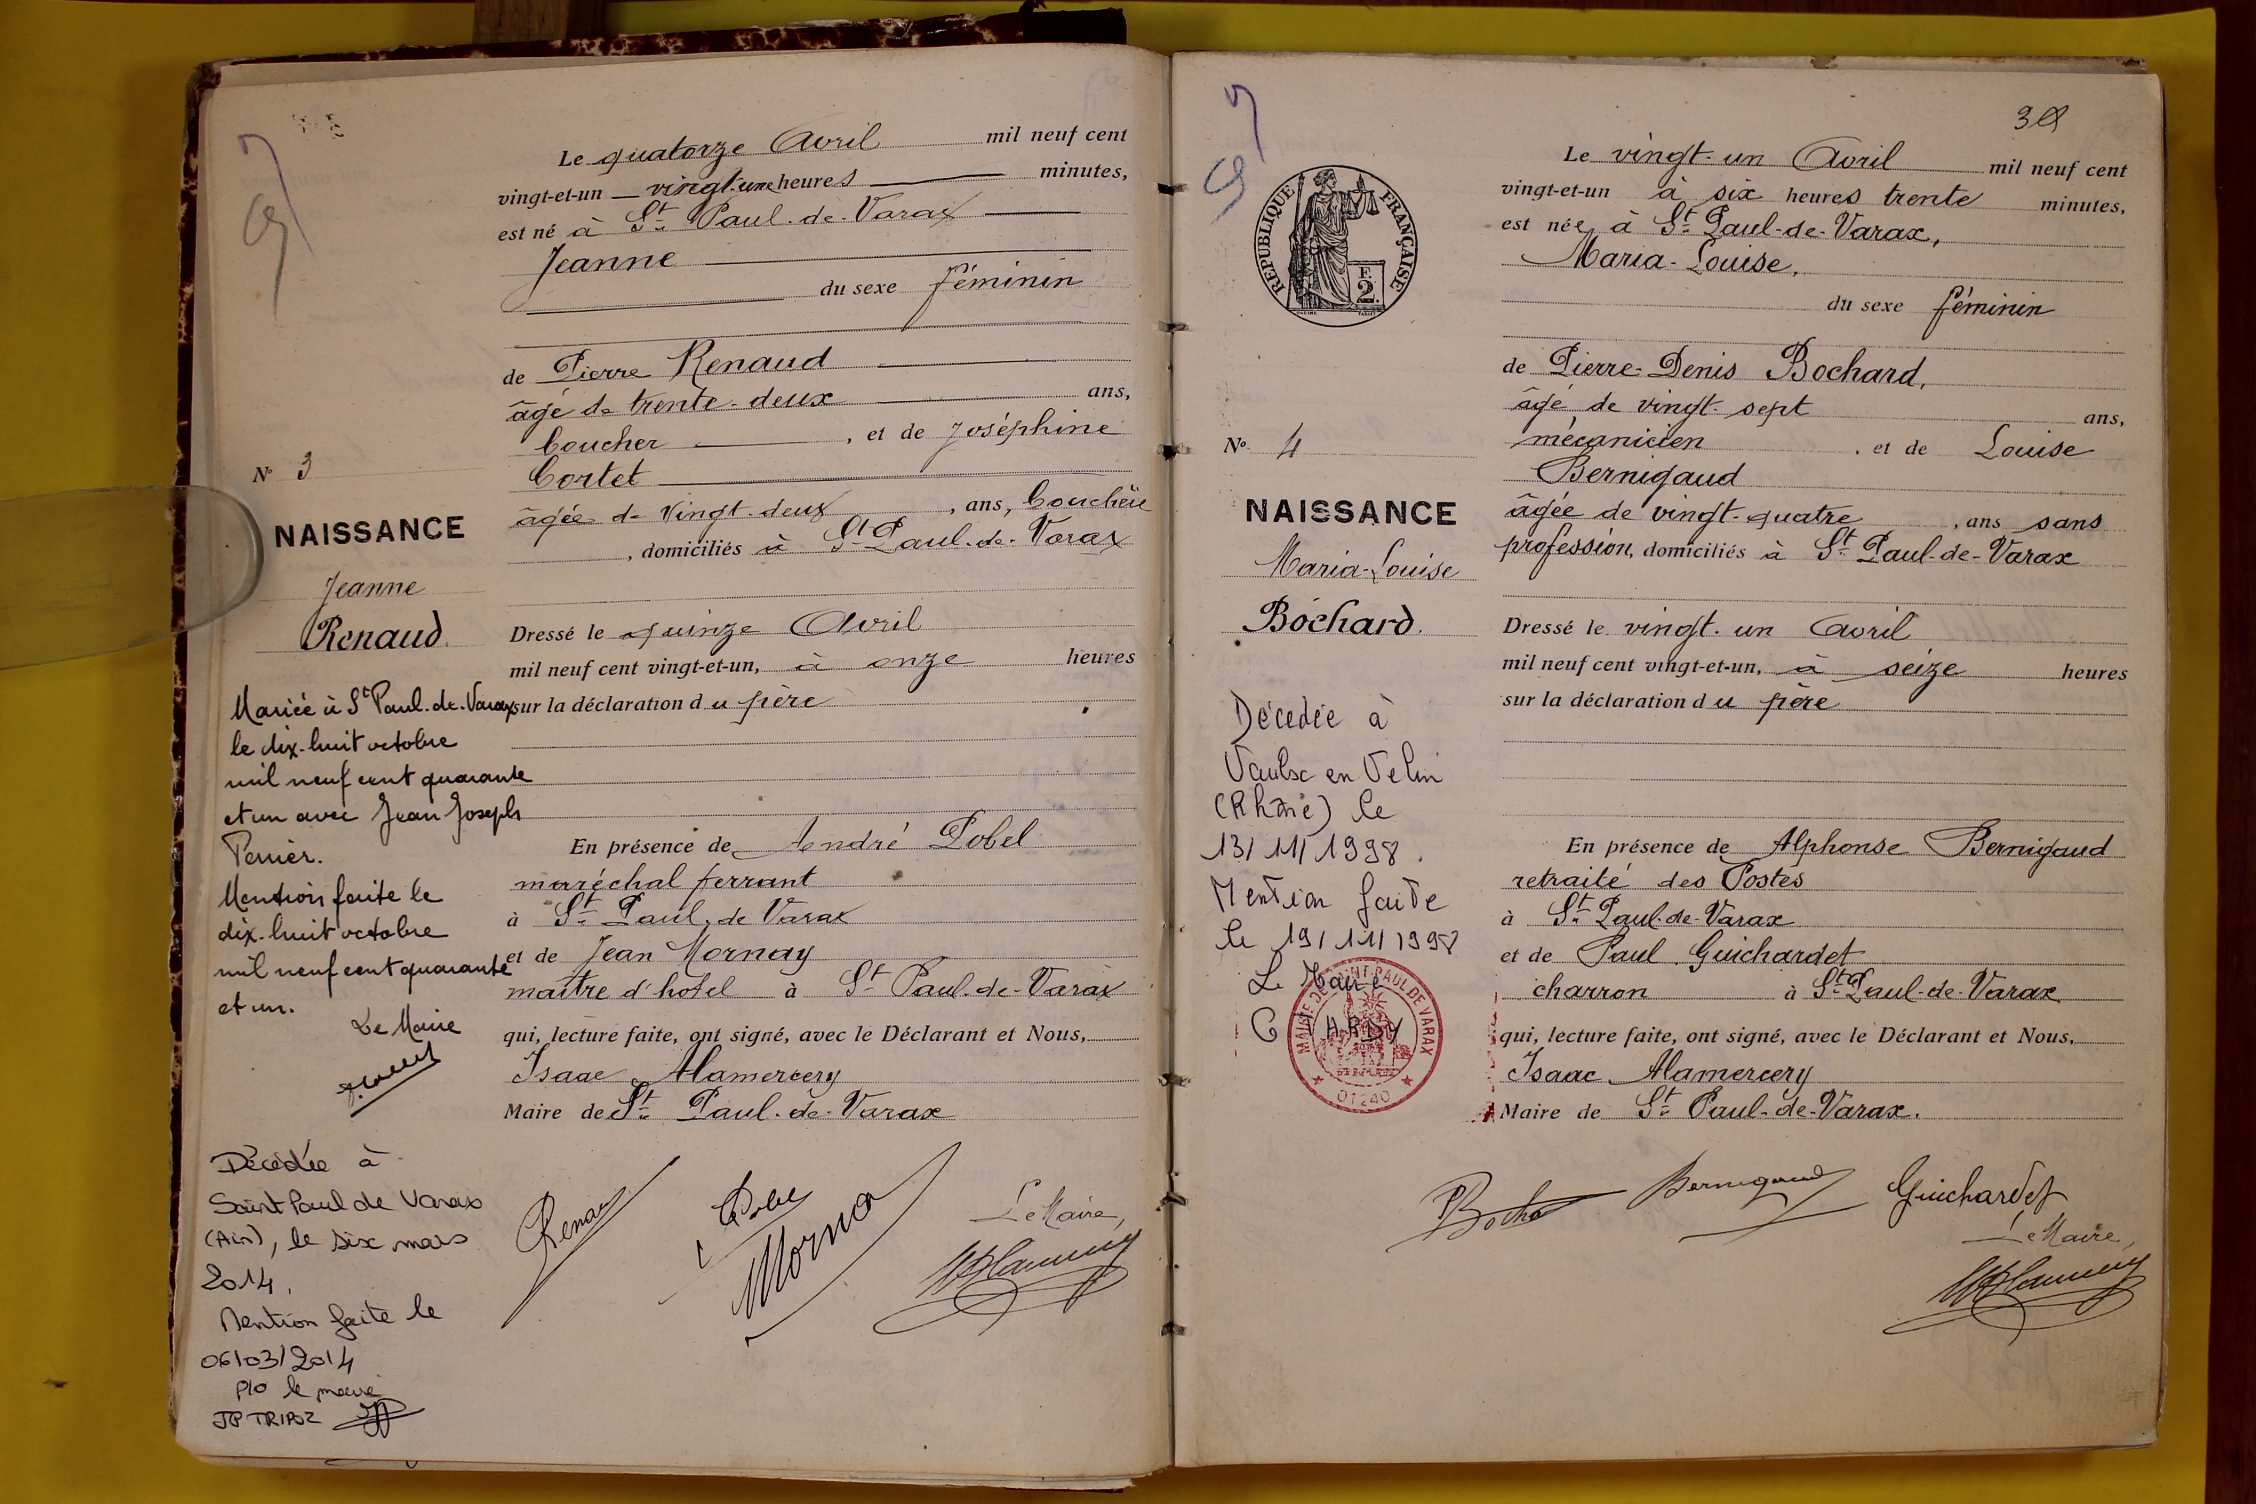 Le quatorze Avril mil neuf cent
vingt-et-un vingt-une heures minutes,
est né à St Paul-de-Varax
Jeanne
du sexe féminin
de Pierre Renaud
âgé de trente-deux ans,
Coucher, et de Joséphine
Cortet
âgée de vingt-deux, ans,
, domiciliés à St Paul-de-Varax
N° 3
NAISSANCE
Jeanne
Renaud
Dressé le quinze Avril
mil neuf cent vingt-et-un, à onze heures
sur la déclaration du père
Mariée à St Paul-de-Varax
le dix-huit octobre
mil neuf cent quarante
et un avec Jean Joseph
Perrier.
Mention faite le
dix-huit octobre
mil neuf cent quarante
et un.
Le Maire
En présence de André Pobel
maréchal ferrant
à St Paul de Varax
et de Jean Mornay
maître d'hôtel à St Paul-de-Varax
qui, lecture faite, ont signé, avec le Déclarant et Nous,
Isaac Alamercery
Maire de St Paul-de-Varax
Décédée à
Saint Paul de Varax
(Ain), le six mars
2014.
Mention faite le
06/03/2014
P/O le maire
JP TRIPOZ
Renaud
Pobel
Mornay
Le Maire,
38
REPUBLIQUE FRANÇAISE
F.
2.
Le vingt-un Avril mil neuf cent
vingt-et-un à six heures trente minutes,
est née à St Paul-de-Varax,
Maria-Louise,
du sexe féminin
de Pierre-Denis Bochard,
âgé de vingt-sept ans,
mécanicien, et de Louise
Bernigaud
âgée de vingt-quatre, ans sans
profession, domiciliés à St Paul-de-Varax
N° 4
NAISSANCE
Maria-Louise
Bochard.
Dressé le vingt-un Avril
mil neuf cent vingt-et-un, à seize heures
sur la déclaration du père
Décédée à
Vaulx en Velin
(Rhône) le
13/11/1998.
Mention faite
le 19/11/1998
Le Maire
MAIRIE DE SAINT PAUL DE VARAX
01240
En présence de Alphonse Bernigaud
retraité des Postes
à St Paul-de-Varax
et de Paul Guichardet
charron à St Paul-de-Varax
qui, lecture faite, ont signé, avec le Déclarant et Nous,
Isaac Alamercery
Maire de St Paul-de-Varax.
Bernigaud
Guichardet
Le Maire,